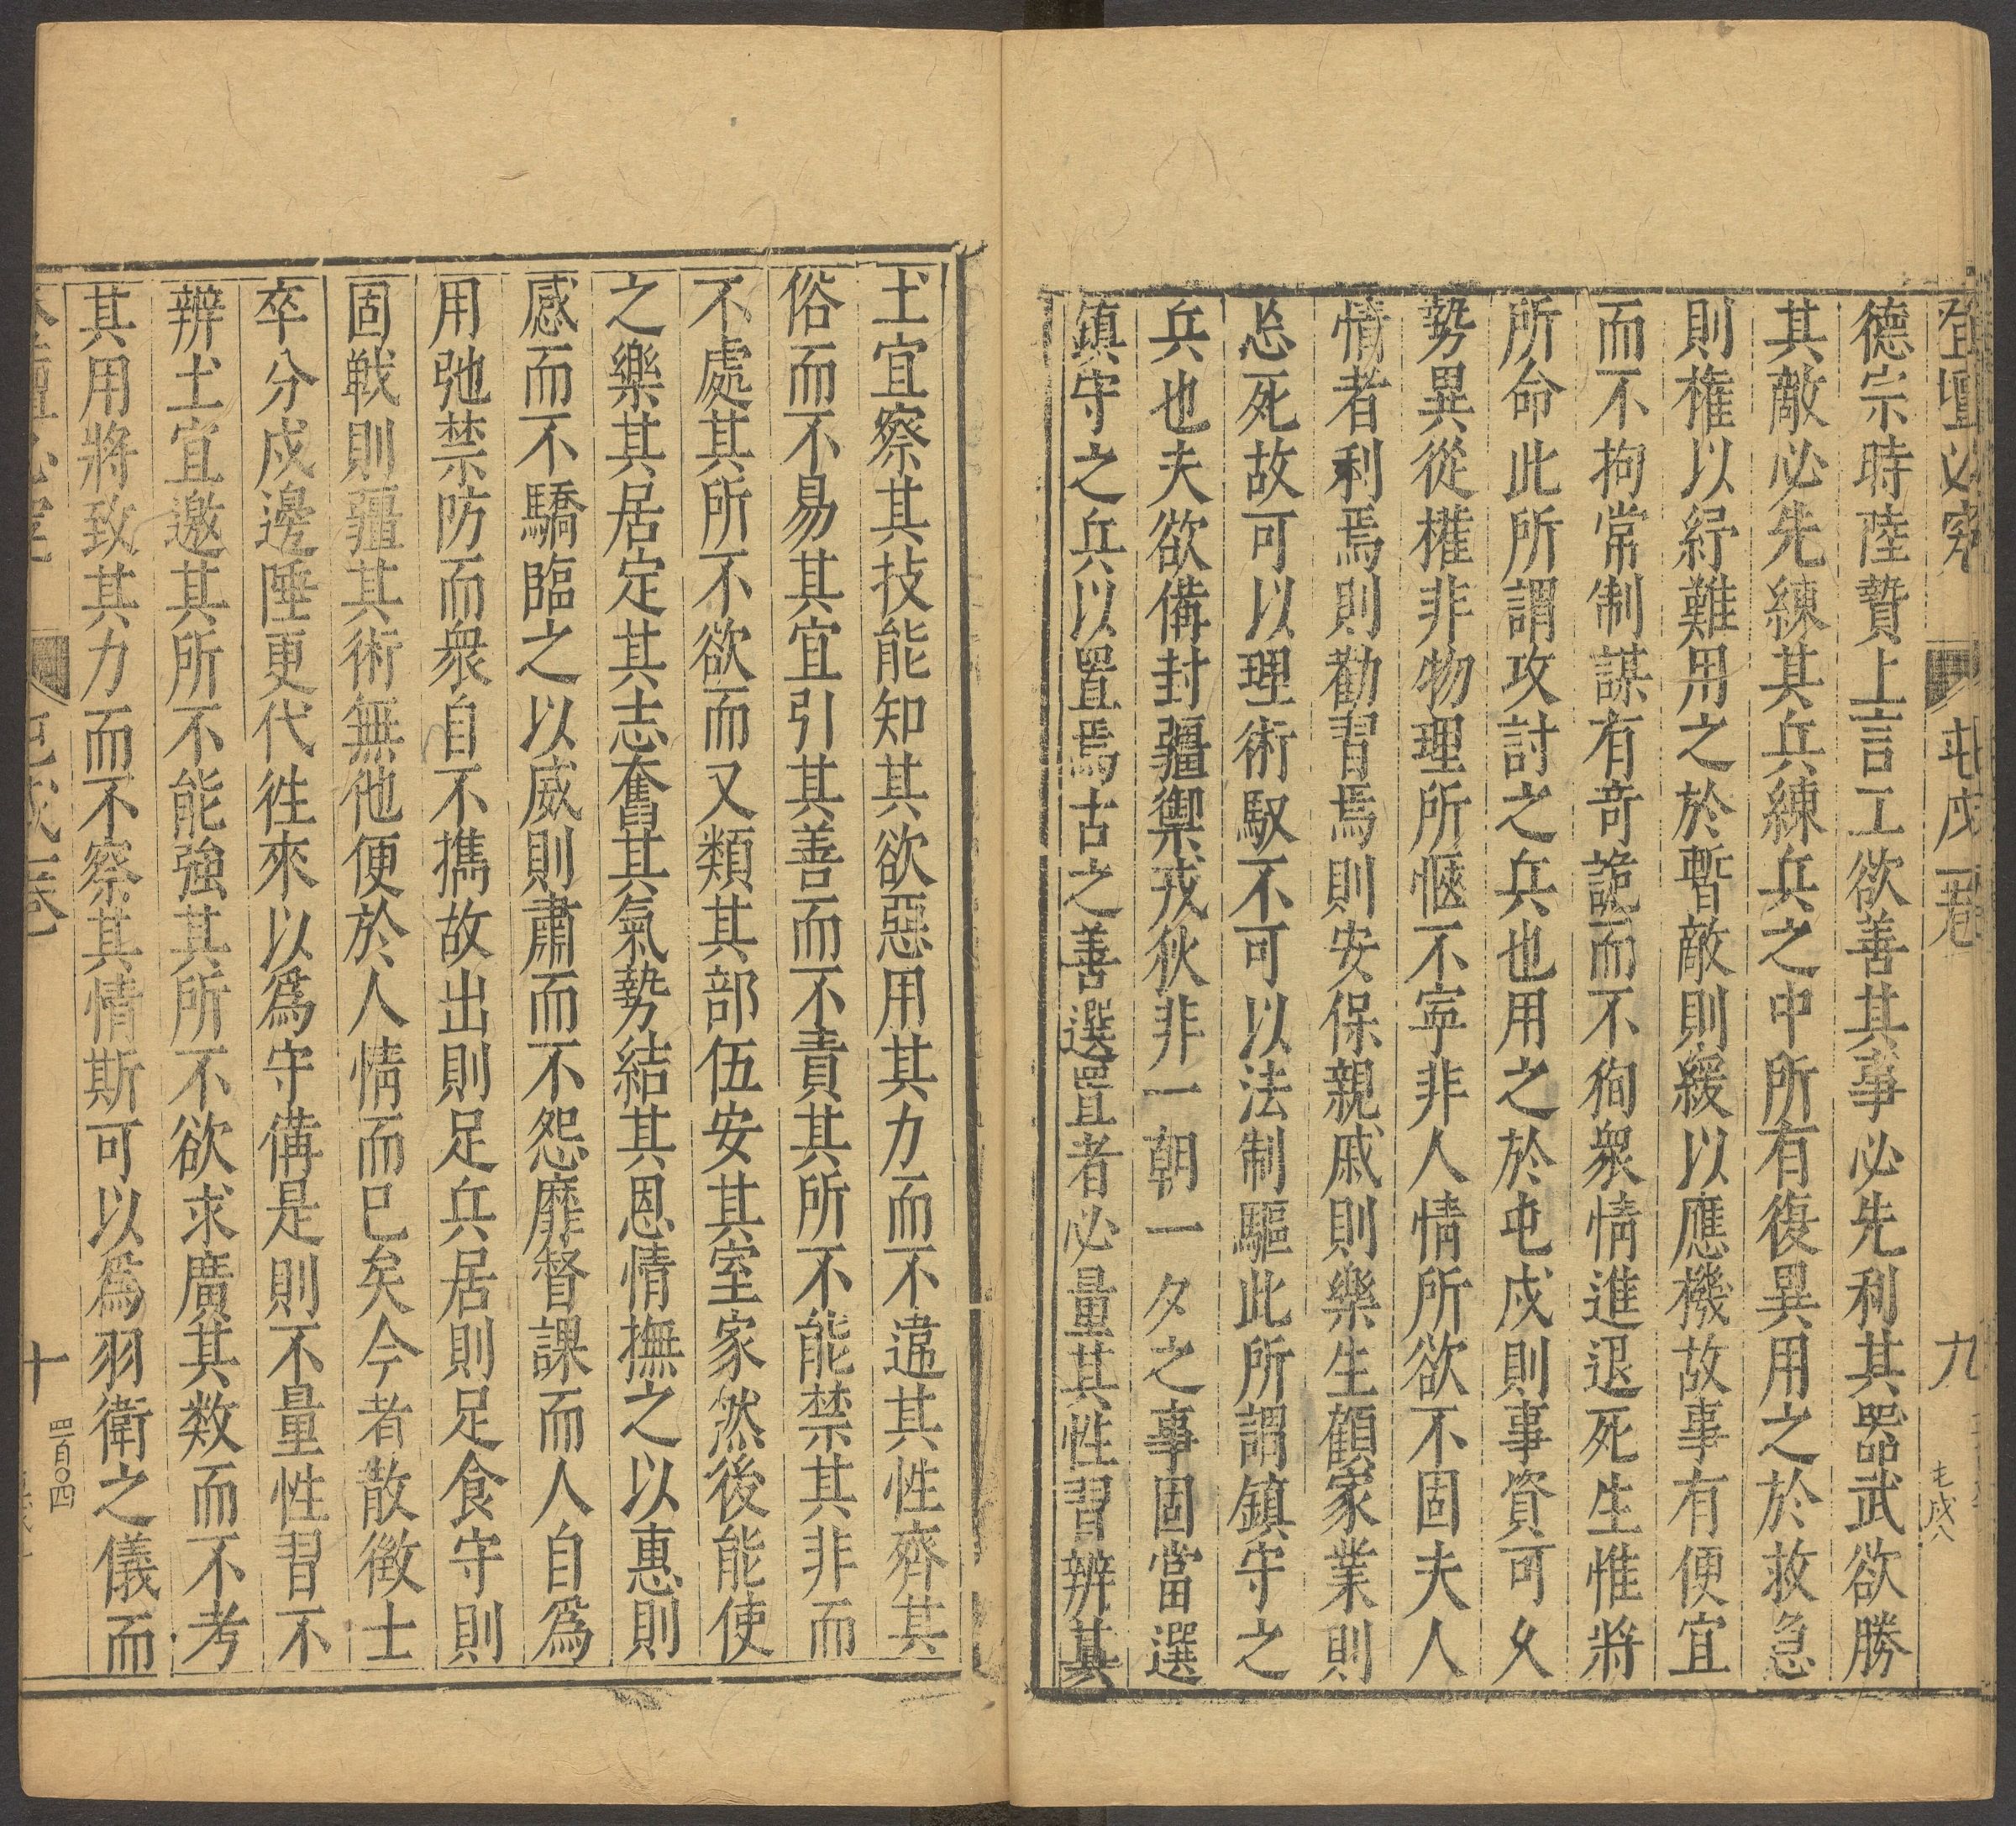 登壇必究 屯戍一卷 九
德宗時陸贄上言工欲善其事必先利其器武欲勝
其敵必先練其兵練兵之中所有復異用之於救急
則權以紓難用之於暫敵則緩以應機故事有便宜
而不拘常制謀有奇詭而不徇衆情進退死生惟將
所命此所謂攻討之兵也用之於屯戍則事資可久
勢異從權非物理所愜不寧非人情所欲不固夫人
情者利焉則勸習焉則安保親戚則樂生顧家業則
忘死故可以理術馭不可以法制驅此所謂鎮守之
兵也夫欲備封疆禦戎狄非一朝一夕之事固當選
鎮守之兵以置焉古之善選置者必量其性習辨其
土宜察其技能知其欲惡用其力而不違其性齊其
俗而不易其宜引其善而不責其所不能禁其非而
不處其所不欲而又類其部伍安其室家然後能使
之樂其居定其志奮其氣勢結其恩情撫之以惠則
感而不驕臨之以威則肅而不怨靡督課而人自爲
用弛禁防而衆自不攜故出則足兵居則足食守則
固戰則疆其術無他便於人情而已矣今者散徵士
卒分戍邊陲更代徃來以爲守備是則不量性習不
辨土宜邀其所不能強其所不欲求廣其数而不考
其用將致其力而不察其情斯可以爲羽衛之儀而
屯戍一卷 十 四百〇四